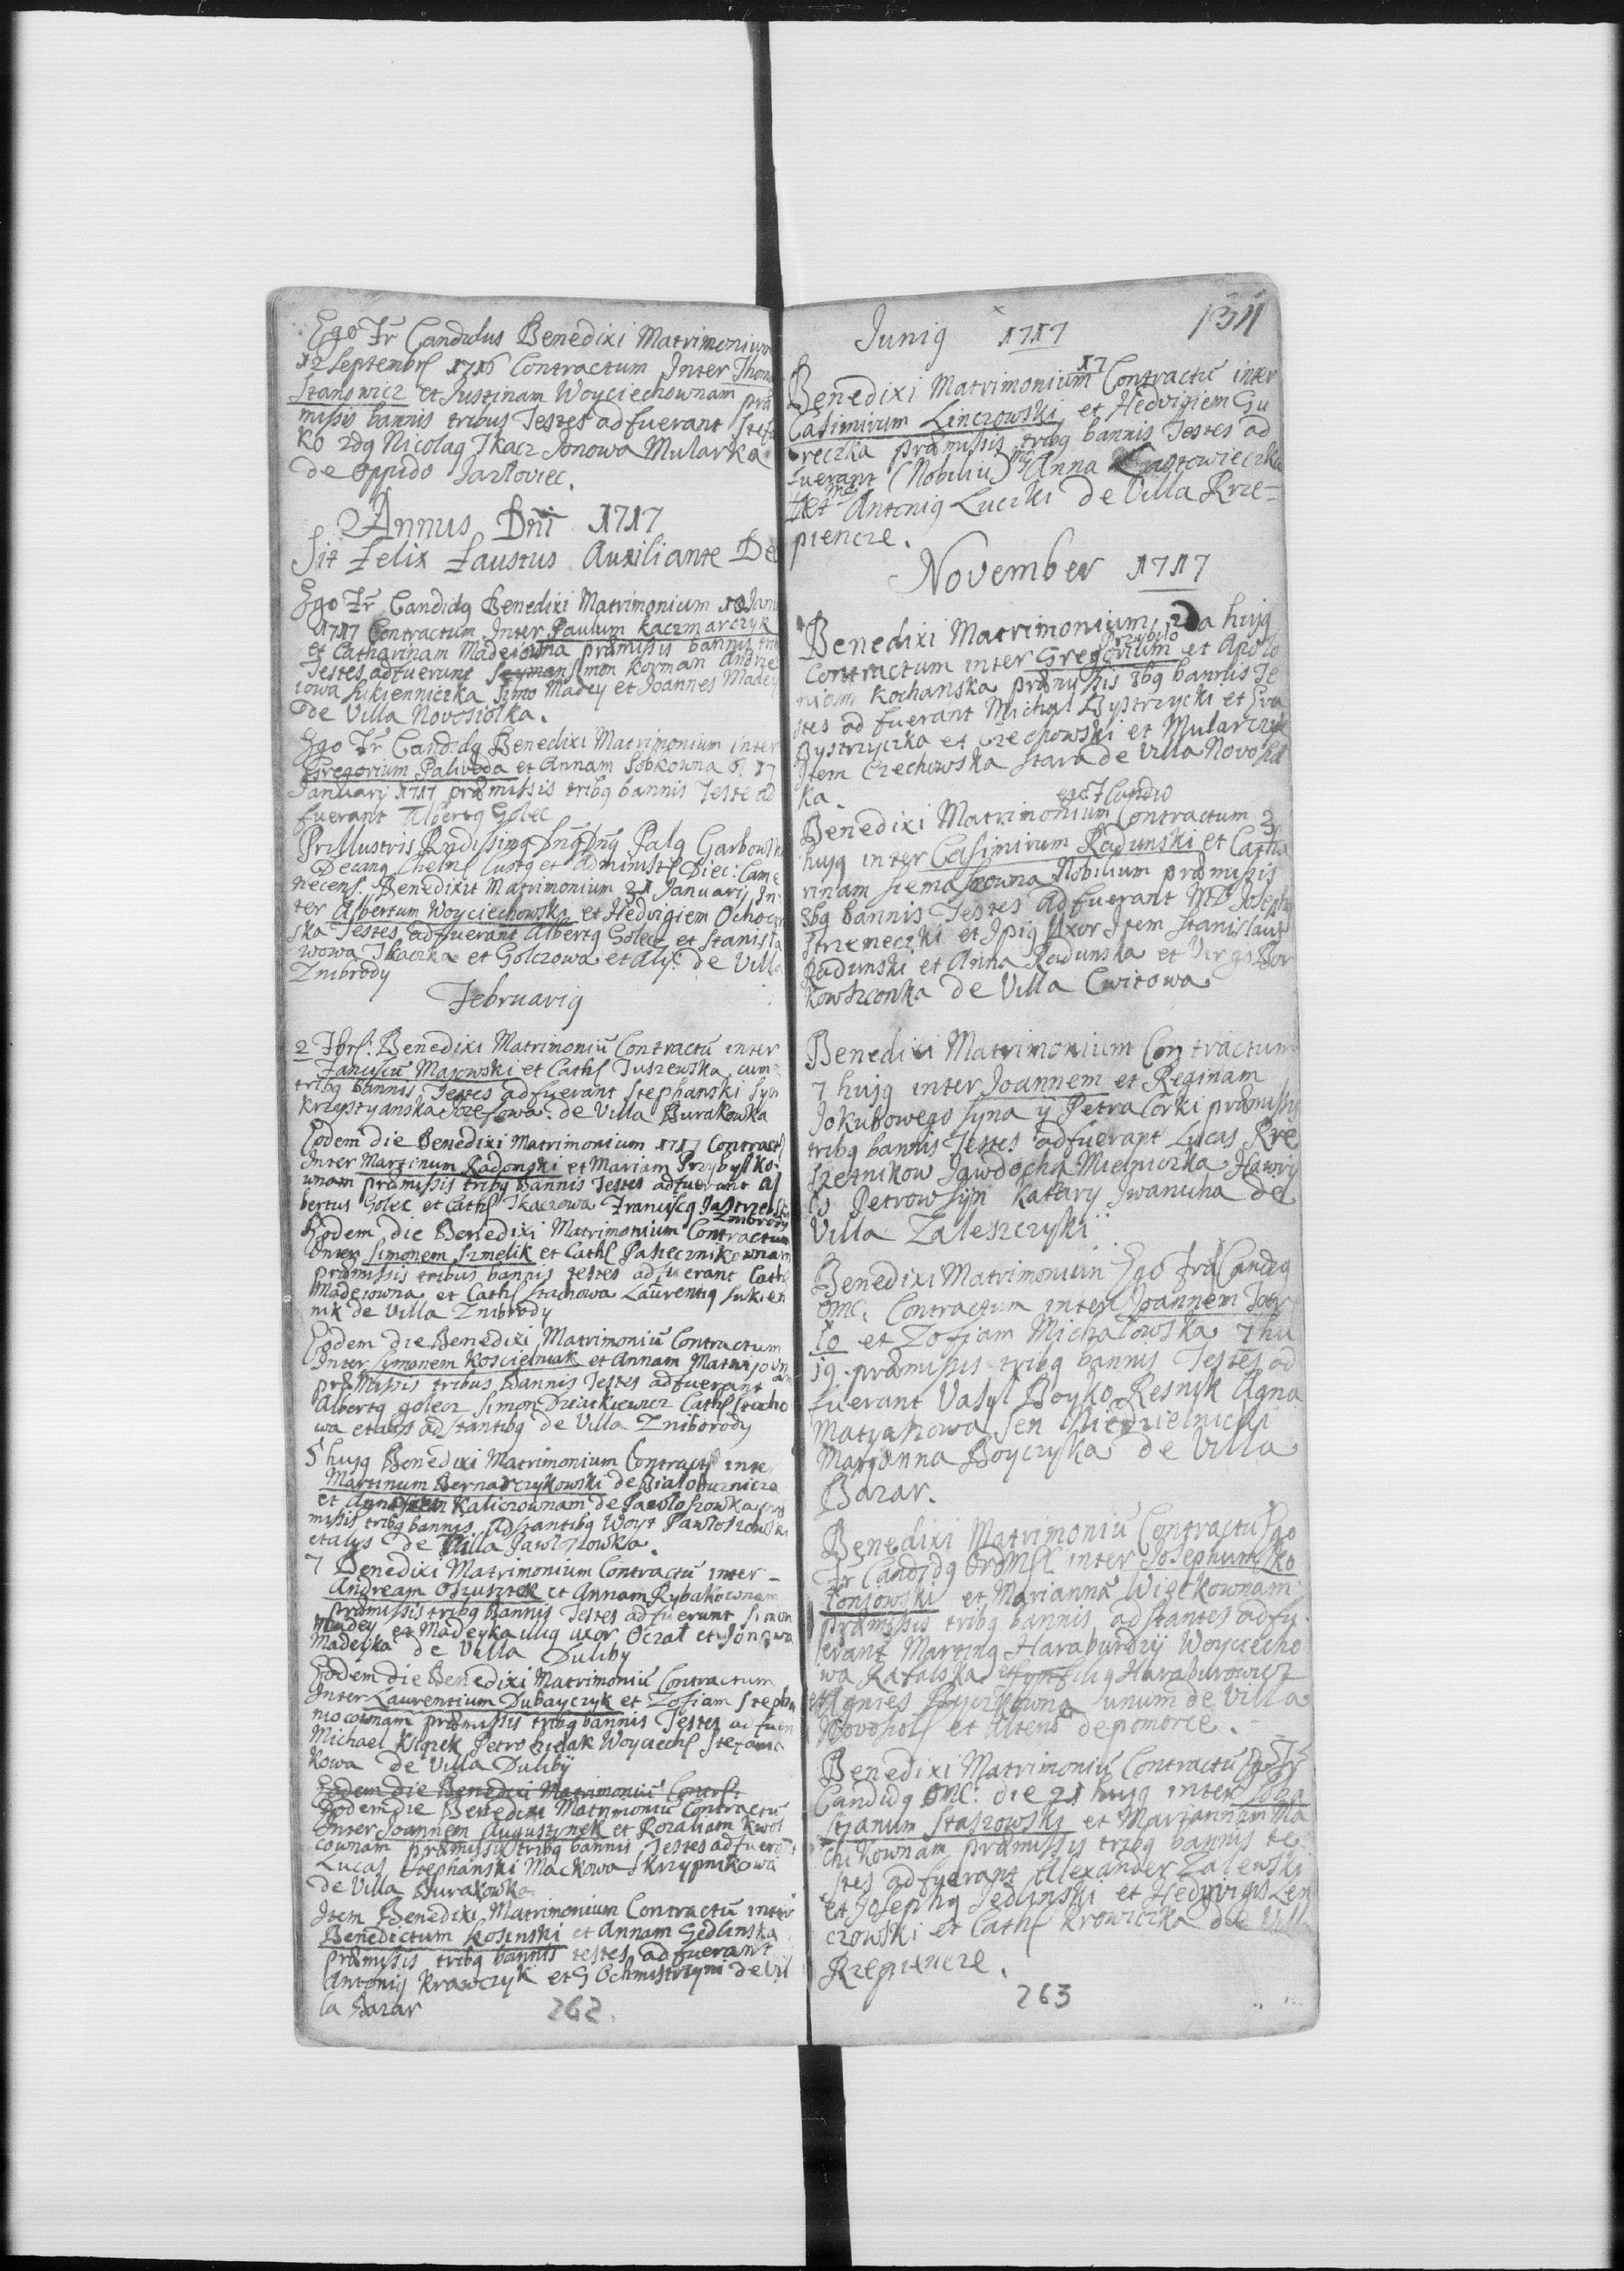 Ego Fr Candidus Benedixi Matrimonium
12 Septembrs 1716 Contractum Inter Thom
Stanowicz et Justinam Woyciechownam præ
missis bannis tribus Testes adfuerant Stefa
ko 2dg Nicolag Tkacz Jonowa Mularka
de oppido Jazłoviec.
Annus Dni 1717
Sit Felix Faustus Auxiliante De
Ego Fr Candidg Benedixi Matrimonium 10 Janu
1717 Contractum Inter Paulum Kaczmarczyk
et Catharinam Madeiowna præmissis bannis tri
Testes adfuerunt Simon Koyman Andrze
iowa Sukienniczka Simo Madey et Joannes Madey
de Villa Novosiolka.
Ego Fr Candidg Benedixi Matrimonium inter
Gregorium Palivoda et Annam Sobkowna 17
Januarij 1717 præmissis tribg bannis Teste ad
fuerant Albertg Golec
Prillustris Rndissimg Dng Dng Palg Garbowski
Decang Chelms Custg et Administr Diec: Came
necens: Benedixit Matrimonium 21 Januarij In
ter Albertum Woyciechowski et Hedvigiem Ochoc
ska Testes adfuerant Albertg Golec et Stanista
wowa Tkaczka et Golczowa et Alys: de Villa
Znibrody
Februarig
2 Fbrs: Benedixi Matrimoniū Contractū inter
Fanciscū Majowski et Caths Juszewska cum
tribg bannis Testes adfuerant Stephanski Syn
Krzystyanska Jozefowa de Villa Burakowka
Eodem die Benedixi Matrimonium 1717 Contracts
Inter Martinum Radomski et Mariam Przybylko
wnam præmissis tribg bannis Testes adfuerant Al
bertus Golec et Caths Tkaczowa Franciscg Jastrzebs
Znibrody
Eodem die Benedixi Matrimonium Contractum
Inter Simonem Szmelik et Caths Pasiecznikownam
præmissis tribus bannis testes adfuerant Caths
Madeiowna et Caths Stachowa Laurentig Sukien
nik de Villa Znibrody
Eodem die Benedixi Matrimoniū Contractum
Inter Simonem Koscielniak et Annam Matwiiown
præmissis tribus Bannis Testes adfuerant am
Albertg golecz Simon Caths Stacho
wa et alys adstantibg de Villa Zniborody
5 hujg Benedixi Matrimonium Contracts inter
Martinum Bernadczykowski de Białobuznicza
et Kaliczownam de Pawłoszowka præ
missis tribg bannis adstantibg Woyt Pawłoszowski
et alys de Villa Pawłoszowka.
7 Benedixi Matrimonium Contractū inter
Andream Oszustek et Annam Rybakownam
præmissis tribg Bannis Testes adfuerunt Simon
Madey et Madeyka illig uxor Oczat et Jonowa
Madeyka de Villa Duliby
Eodem die Benedixi Matrimoniū Contractum
Inter Laurentium Dubayczyk et Zofiam Stepha
niocownam præmissis tribg bannis Testes adfuer
Michael Petro Woyciechs Stefania
kowa de Villa Duliby
Eodem die Benedixi Matrimoniū Contrs:
Eodem die Benedixi Matrimoniū Contractū
Inter Joannem Augustynek et Rozaliam Kwos
cownam præmissis tribg bannis Testes adfuerō
Lucas Stephanski Mackowa Skrzypnikowa
de Villa Burakowka
Item Benedixi Matrimonium Contractū inter
Benedictum Kosinski et Annam Sedlinska
præmissis tribg bannis testes adfuerant
Antonig Krawczyk et G Ochmistrzyni de Vil
la Bazar
262.
1311
Junig 1717
Benedixi Matrimonium 17 Contractū inter
Casimirum Linczowski et Hedvigiem Gu
reczka præmissis tribg bannis Testes ad
fuerant (Nobiliū) Anna
et Antonig Luczki de Villa Krze=
piencze.
November 1717
Benedixi Matrimonium 2da hujg
Contractum inter Gregorium Przybiło et Apolo
niam Kochanska præmissis 3bg bannis Te
stes adfuerant Michał Bystrzycki et Eva
Bystrzyczka et Czechowski et Mularczyk
Item Czechowska stara de Villa Novosiol
ka.
ego F Candid
Benedixi Matrimonium Contractum 3
hujg inter Casimirum Radunski et Catha
rinam Siemaszowna Nobilium præmissis
3bg bannis Testes adfuerant MD Josephg
Strzemeczki et Ipsig Uxor Item Stanislaus
Radunski et Anna Radunska et Virgo Bor
kowszconka de Villa Cwitowa
Benedixi Matrimonium Contractum
7 hujg inter Joannem et Reginam
Jakubowego Syna y Petra Corki præmissis
tribg bannis Testes adfuerant Lucas Kre
szetnikow Jawdocha Mielniczka Hawry
lo Petrow Syn Katary Iwanicha de
Villa Zaleszczyki
Benedixi Matrimonium Ego Fra Candidg
OMC. Contractum inter Joannem Jor
lo et Zofiam Michałowska 7 hu
ig. præmissis tribg bannis Testes ad
fuerant Vasyl Boyko Resnik Agna
Matyaszowa Sen Niedzielnicki
Maryanna Boyczyka de Villa
Bazar.
Benedixi Matrimoniū Contractū Ego
Fr Candidg OrdMsC inter Josephum Sko
ronjowski et Mariannā Wigtkownam
præmissis tribg bannis adstantes adfu
erant Marting Haraburdzy Woyciecho
wa Rafalska et Filig Haraburowicz
et Agnies unum de Villa
Novosiols et Altens de pomorce.
Benedixi Matrimoniū Contractū Ego Fr
Candidg OMC: die 21 hujg inter Seba
stjanum Staszowski et Mariannam Ma
chikownam præmissis tribg bannis te
stes adfuerant Alexander Zalewski
et Josephg Jedlinski et Hedvigis Len
czowski et Caths Krowiczka de Villa
Krzepiencze.
263